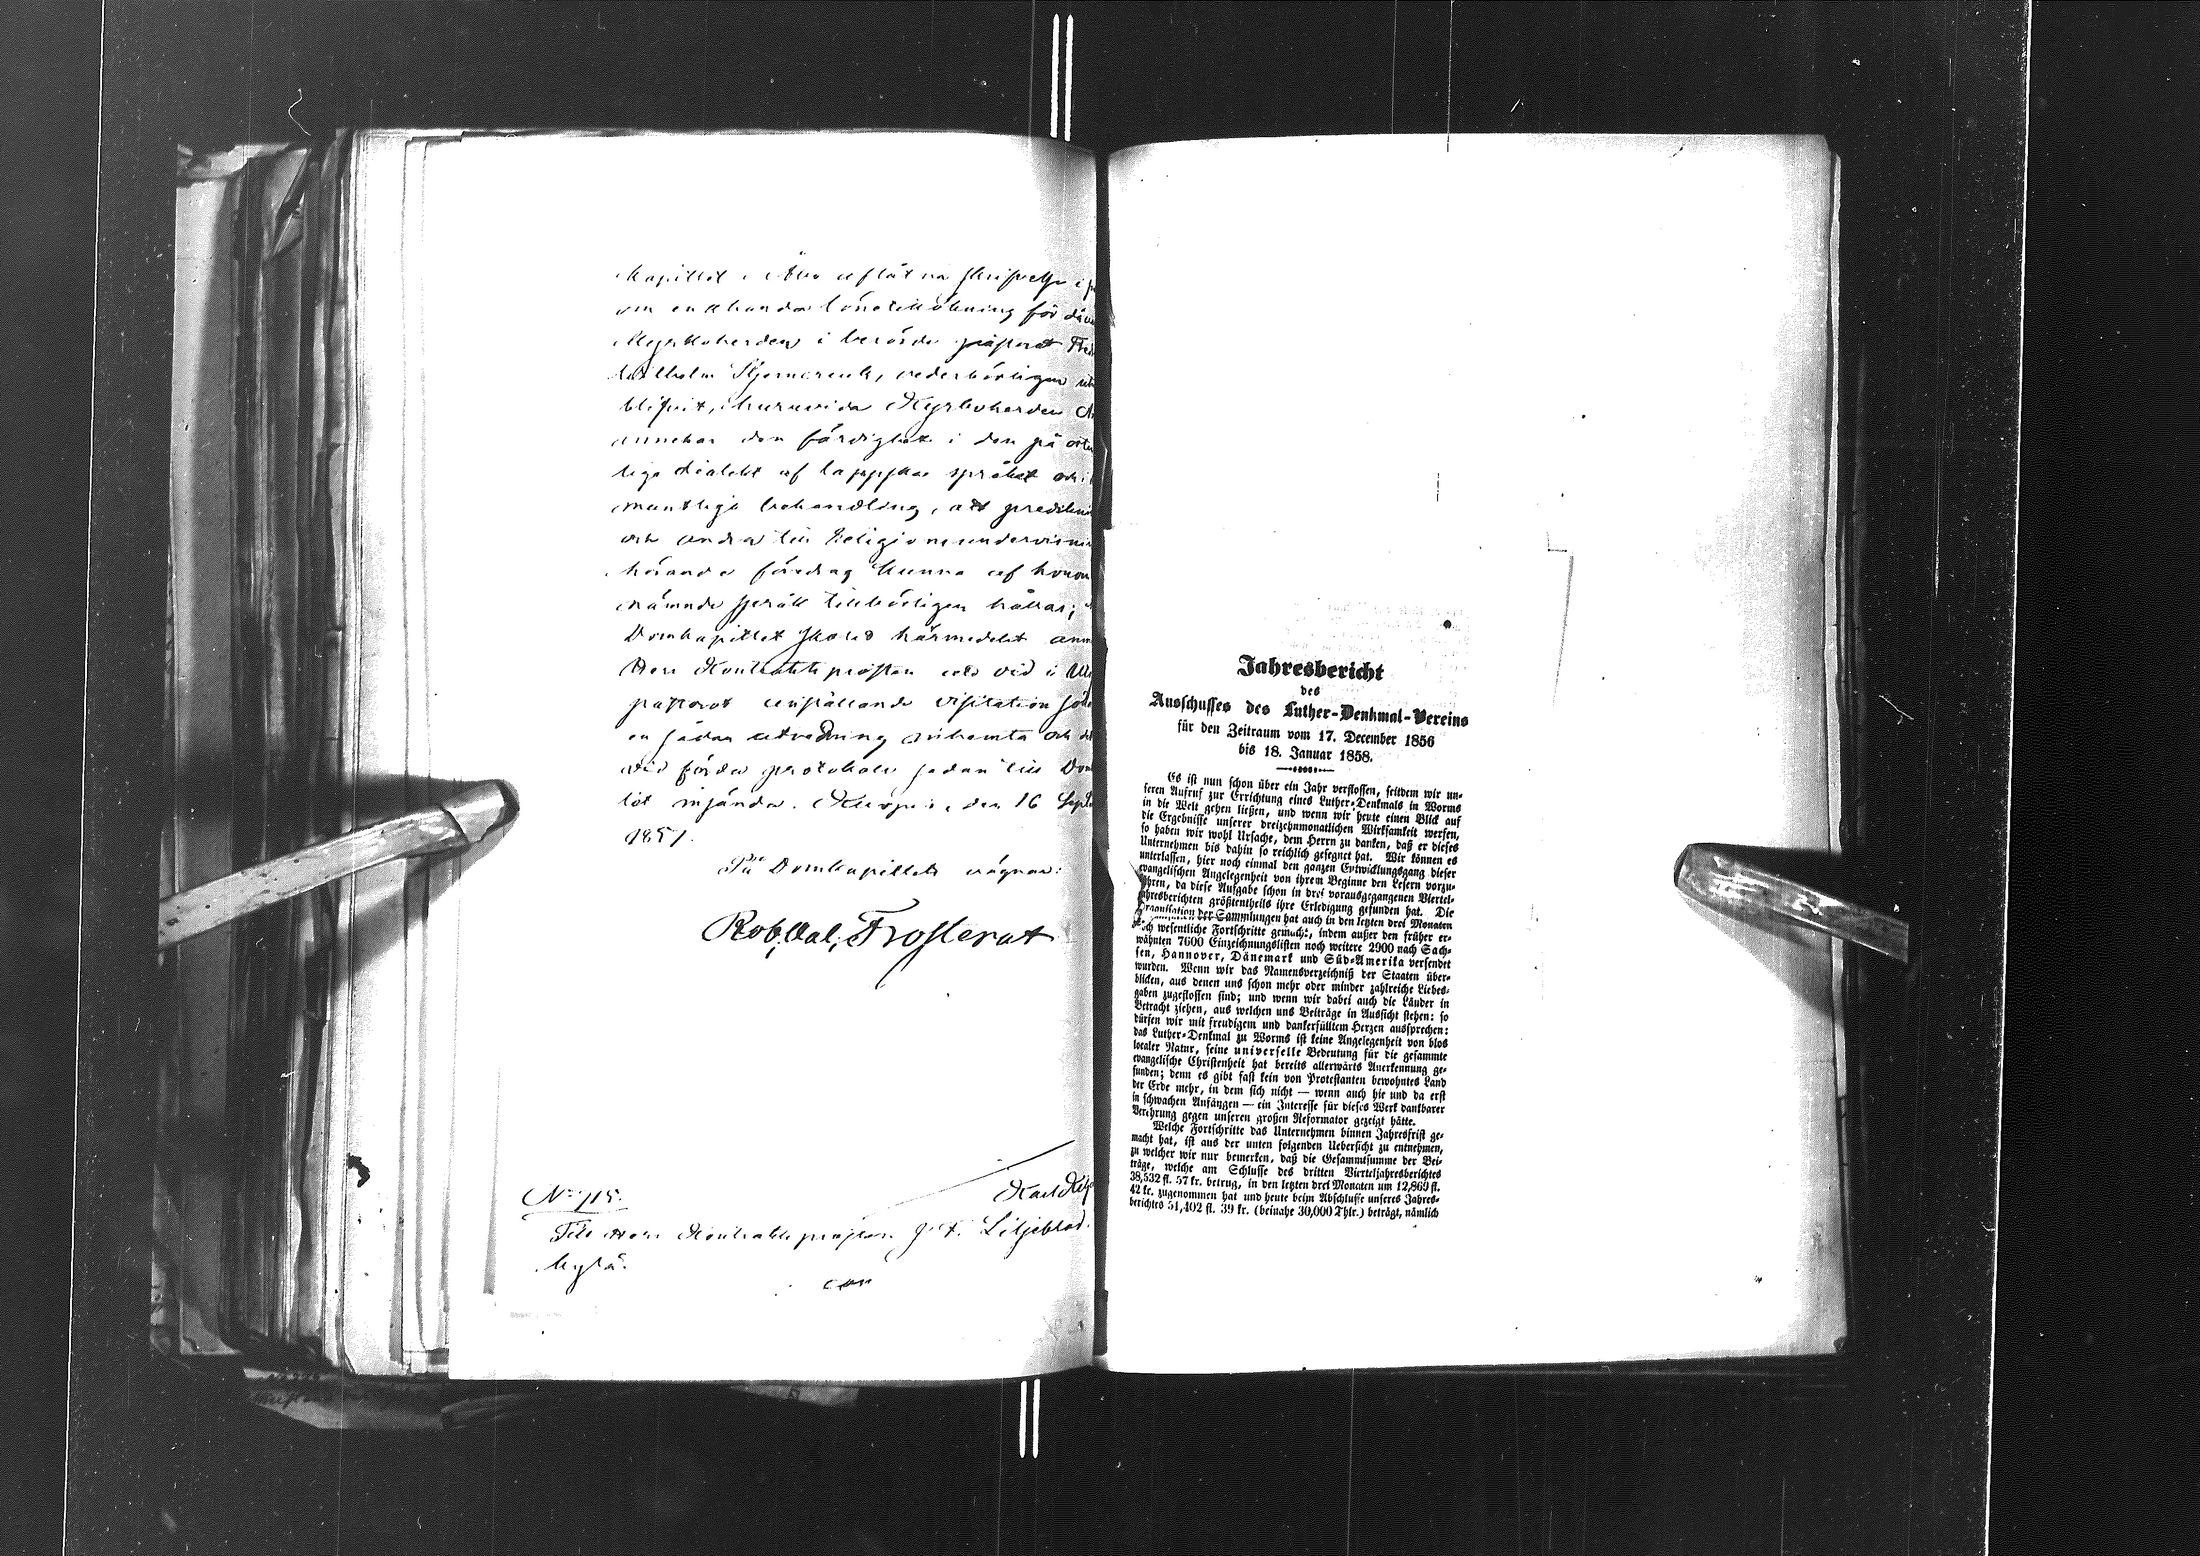 kapitlet i Åbo aflåtna skrifvelse i
om enahanda lönetillökning för
Kyrkoherden i berörde pastorat
Wilhelm Stjerncreutz, vederbörligen
blifvit, huruvida Kyrkoherden
innehar den färdighet i den på
liga dialekt af lappska språket och i
muntliga behandling, att
och andra till Religionsundervisnin
hörande föredrag kunna af honom
nämnda språk tillbörligen hållas;
Domkapitlet skolat härmedelst
Herr Kontraktsprosten att vid i
pastorat anställande visitation
en sådan utredning inhemta och
vid förda protokoll sedan till
let insända. Kuopio, den 16
1857.
På Domkapitlets vägnar:
Rob. Val. Frosterus
No 715.
Till Herr Kontraktsprosten J. F. Liljeblad.
Kylä.
Jahresbericht
des
Ausschusses des Luther-Denkmal-Vereins
für den Zeitraum vom 17. December 1856
bis 18. Januar 1858.
Es ist nun schon über ein Jahr verflossen, seitdem wir un-
seren Aufruf zur Errichtung eines Luther-Denkmals in Worms
in die Welt gehen ließen, und wenn wir heute einen Blick auf
die Ergebnisse unserer dreizehnmonatlichen Wirksamkeit werfen,
so haben wir wohl Ursache, dem Herrn zu danken, daß er dieses
Unternehmen bis dahin so reichlich gesegnet hat. Wir können es
unterlassen, hier noch einmal den ganzen Entwicklungsgang dieser
evangelischen Angelegenheit von ihrem Beginne den Lesern vorzu-
führen, da diese Aufgabe schon in drei vorausgegangenen Viertel-
jahresberichten größtentheils ihre Erledigung gefunden hat. Die
Organisation der Sammlungen hat auch in den letzten drei Monaten
noch wesentliche Fortschritte gemacht, indem außer den früher er-
wähnten 7600 Einzeichnungslisten noch weitere 2900 nach Sach-
sen, Hannover, Dänemark und Süd-Amerika versendet
wurden. Wenn wir das Namensverzeichniß der Staaten über-
blicken, aus denen uns schon mehr oder minder zahlreiche Liebes-
gaben zugeflossen sind; und wenn wir dabei auch die Länder in
Betracht ziehen, aus welchen uns Beiträge in Aussicht stehen: so
dürfen wir mit freudigem und dankerfülltem Herzen aussprechen:
das Luther-Denkmal zu Worms ist keine Angelegenheit von blos
localer Natur, seine universelle Bedeutung für die gesammte
evangelische Christenheit hat bereits allerwärts Anerkennung ge-
funden; denn es gibt fast kein von Protestanten bewohntes Land
der Erde mehr, in dem sich nicht — wenn auch hie und da erst
in schwachen Anfängen — ein Interesse für dieses Werk dankbarer
Verehrung gegen unseren großen Reformator gezeigt hätte.
Welche Fortschritte das Unternehmen binnen Jahresfrist ge-
macht hat, ist aus der unten folgenden Uebersicht zu entnehmen,
zu welcher wir nur bemerken, daß die Gesammtsumme der Bei-
träge, welche am Schlusse des dritten Vierteljahresberichtes
38,532 fl. 57 kr. betrug, in den letzten drei Monaten um 12,869 fl.
42 kr. zugenommen hat und heute beim Abschlusse unseres Jahres-
berichtes 51,402 fl. 39 kr. (beinahe 30,000 Thlr.) beträgt, nämlich